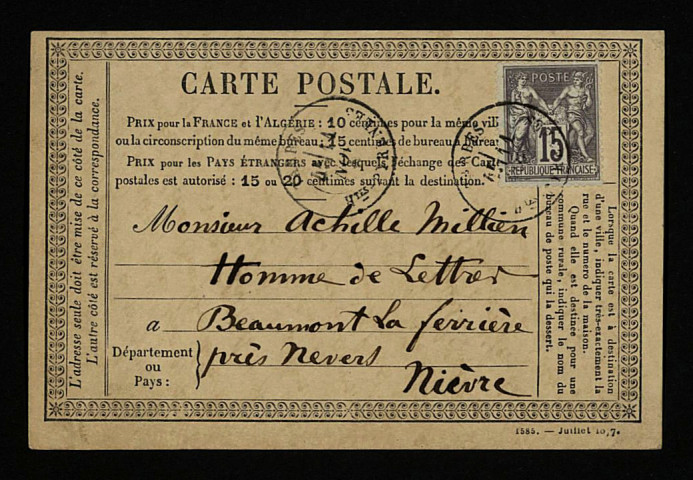 CARTE POSTALE.
PRIX pour la FRANCE et l'ALGÉRIE : 10 centimes pour la même vil
ou la circonscription du même bureau; 15 centimes de bureau à bureau
PRIX pour les PAYS ÉTRANGERS avec lesquels l'échange des Cart
postales est autorisé : 15 ou 20 centimes suivant la destination.
POSTE
15
RÉPUBLIQUE FRANÇAISE
Monsieur Achille Millien
Homme de Lettres
a Beaumont La ferrière
Département
ou
Pays :
près Nevers
Nièvre
L'adresse seule doit être mise de ce côté de la carte.
L'autre côté est réservé à la correspondance.
Lorsque la carte est à destination
d'une ville, indiquer très-exactement la
rue et le numéro de la maison.
Quand elle est destinée pour une
commune rurale, indiquer le nom du
bureau de poste qui la dessert.
1585. — Juillet 18,7.